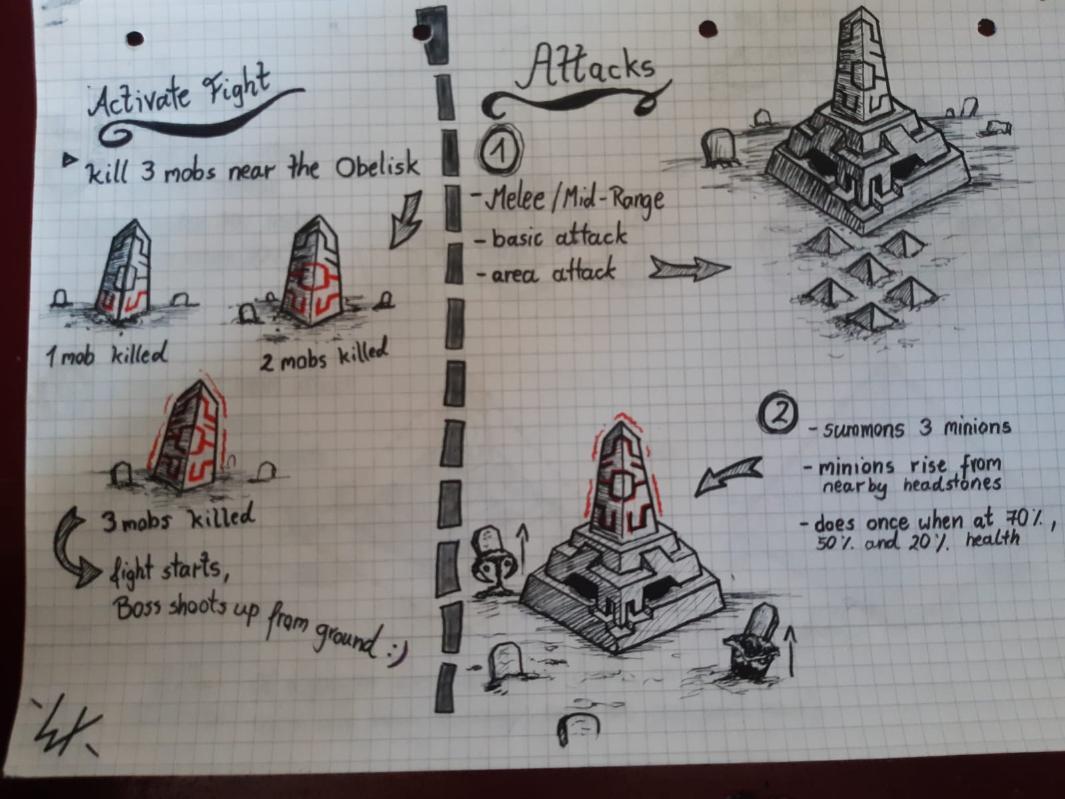 Activate Fight
kill 3 mobs near the Obelisk
1 mob killed
2 mobs killed
3 mobs killed
fight starts,
Boss shoots up from ground :)
Attacks
1
- Melee/Mid-Range
- basic attack
- area attack
2
- summons 3 minions
- minions rise from
nearby headstones
- does once when at 70%,
50% and 20% health